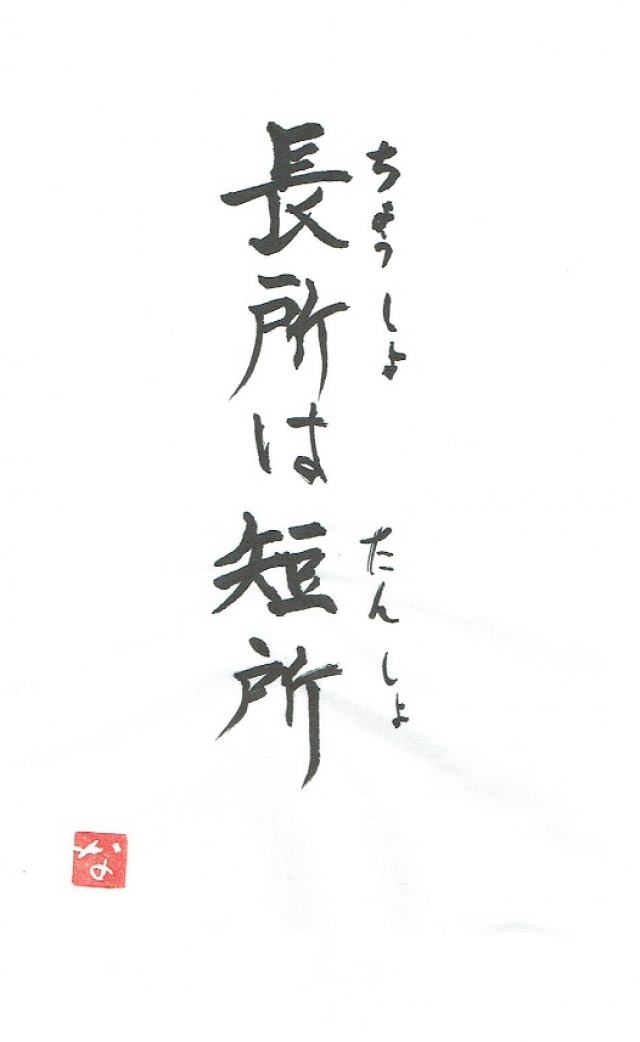 長所は短所
ちょうしょ
たんしょ
な